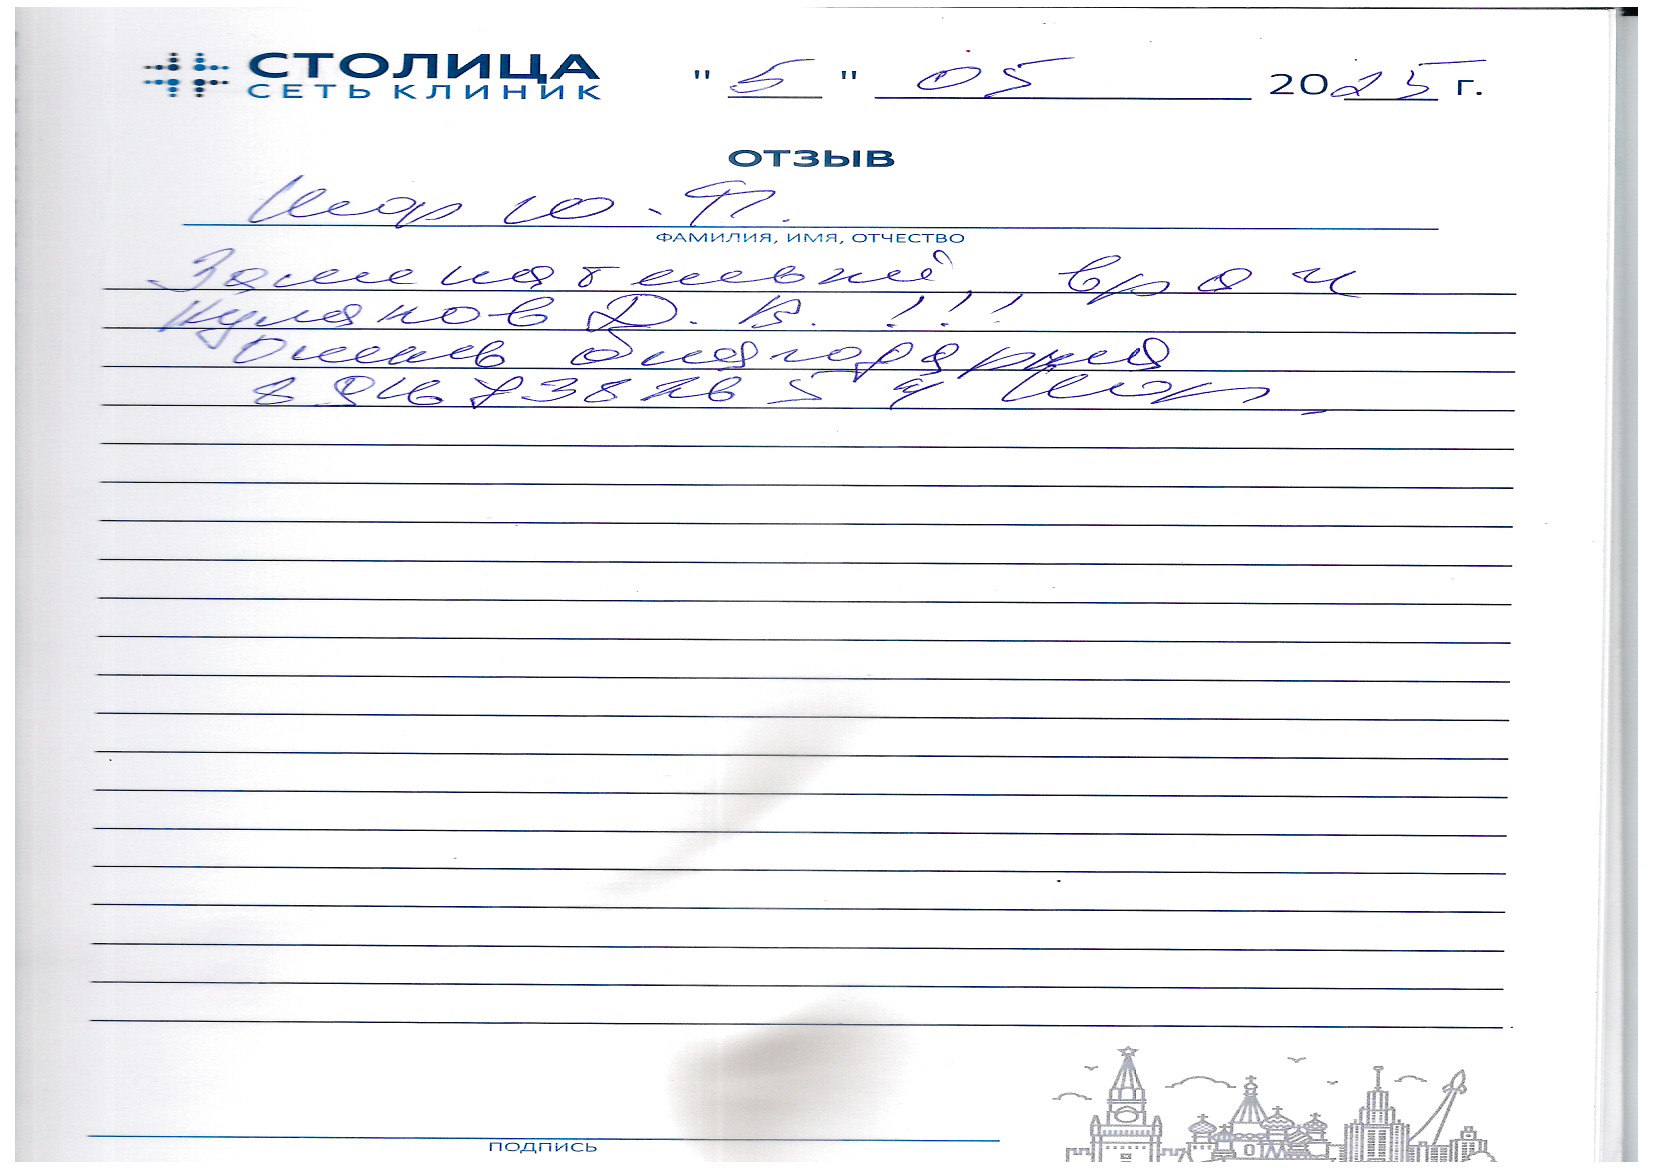 СТОЛИЦА
СЕТЬ КЛИНИК
" 5 " 05 2025 г.
ОТЗЫВ
Шор Ю. П.
ФАМИЛИЯ, ИМЯ, ОТЧЕСТВО
Замечательный врач
Кулаков Д. В. !!!
Очень благодарна
Шор
ПОДПИСЬ